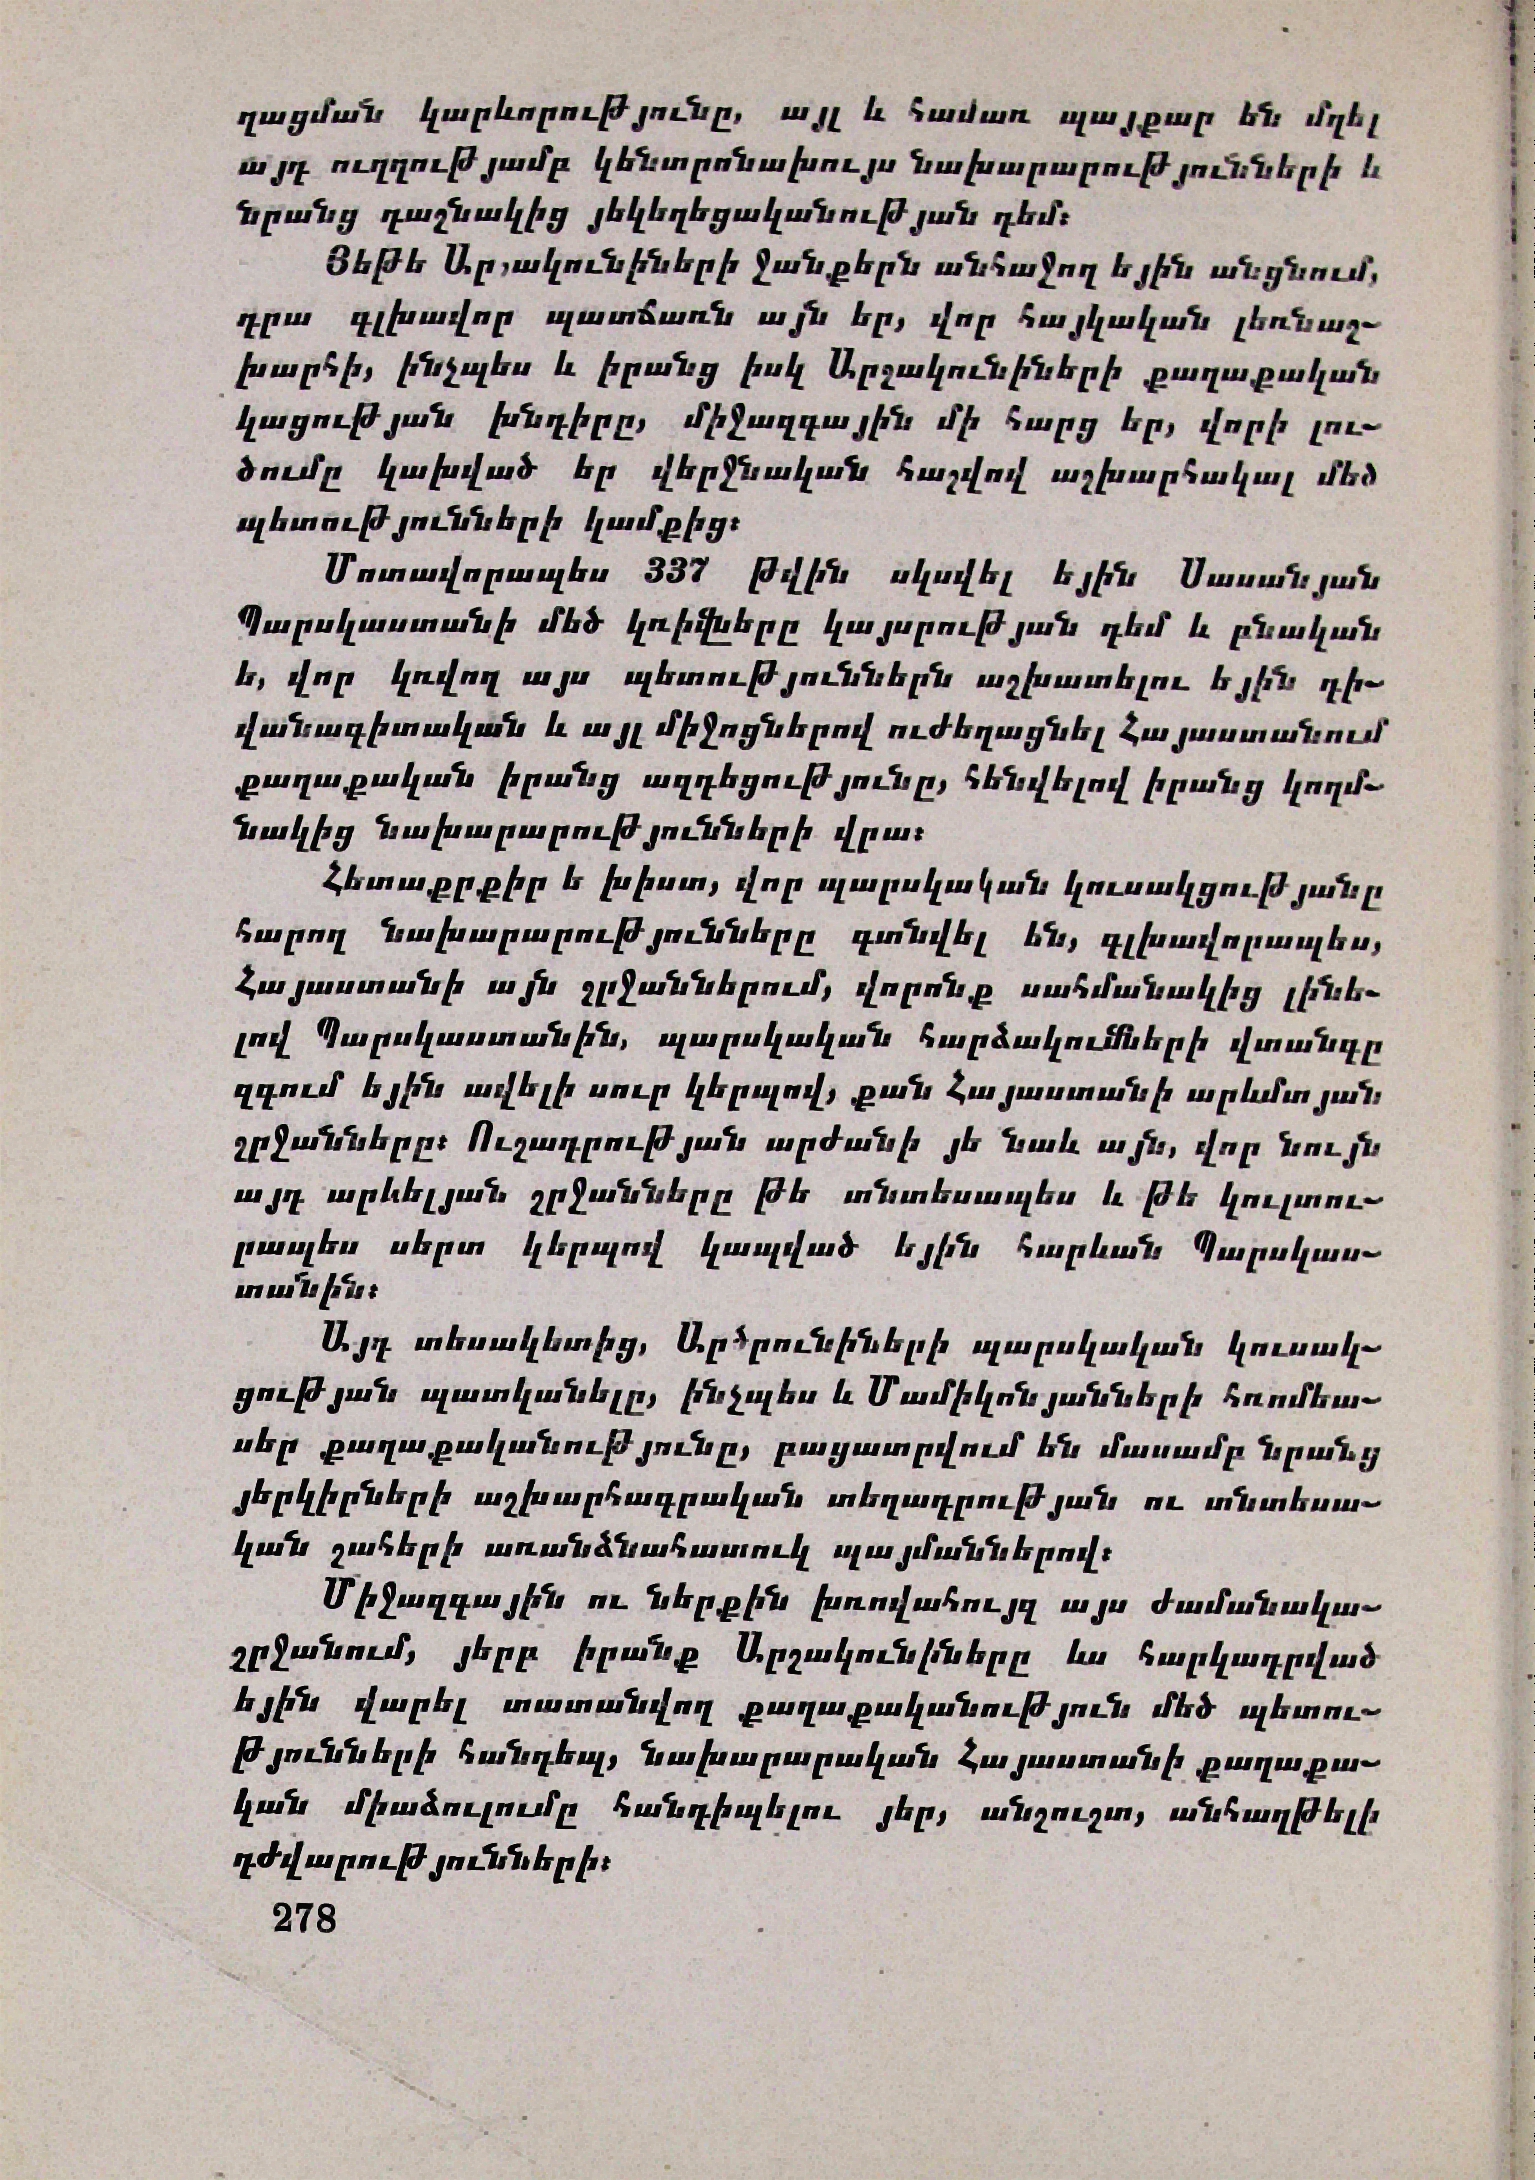 ղացման կարևորությունը, այլ և համառ պայքար են մղել
այդ ուղղությամբ կենտրոնախույս նախարարությունների և
նրանց դաշնակից յեկեղեցականության դեմ։
Յեթե Արշակունիների ջանքերն անհաջող եյին անցնում,
դրա գլխավոր պատճառն այն եր, վոր հայկական լեռնաշ-
խարհի, ինչպես և իրանց իսկ Արշակունիների քաղաքական
կացության խնդիրը, միջազգային մի հարց եր, վորի լու-
ծումը կախված եր վերջնական հաշվով աշխարհակալ մեծ
պետությունների կամքից։
Մոտավորապես 337 թվին սկսվել եյին Սասանյան
Պարսկաստանի մեծ կռիվները կայսրության դեմ և բնական
ե, վոր կռվող այս պետություններն աշխատելու եյին դի-
վանագիտական և այլ միջոցներով ուժեղացնել Հայաստանում
քաղաքական իրանց ազդեցությունը, հենվելով իրանց կողմ-
նակից նախարարությունների վրա։
Հետաքրքիր ե խիստ, վոր պարսկական կուսակցությանը
հարող նախարարությունները գտնվել են, գլխավորապես,
Հայաստանի այն շրջաններում, վորոնք սահմանակից լինե-
լով Պարսկաստանին, պարսկական հարձակումների վտանգը
զգում եյին ավելի սուր կերպով, քան Հայաստանի արևմտյան
շրջանները։ Ուշադրության արժանի յե նաև այն, վոր նույն
այդ արևելյան շրջանները թե տնտեսապես և թե կուլտու-
րապես սերտ կերպով կապված եյին հարևան Պարսկաս-
տանին։
Այդ տեսակետից, Արծրունիների պարսկական կուսակ-
ցության պատկանելը, ինչպես և Մամիկոնյանների հռոմեա-
սեր քաղաքականությունը, բացատրվում են մասամբ նրանց
յերկիրների աշխարհագրական տեղադրության ու տնտեսա-
կան շահերի առանձնահատուկ պայմաններով։
Միջազգային ու ներքին խռովահույզ այս ժամանակա-
շրջանում, յերբ իրանք Արշակունիները ևս հարկադրված
եյին վարել տատանվող քաղաքականություն մեծ պետու-
թյունների հանդեպ, նախարարական Հայաստանի քաղաքա-
կան միաձուլումը հանդիպելու յեր, անշուշտ, անհաղթելի
դժվարությունների։
278